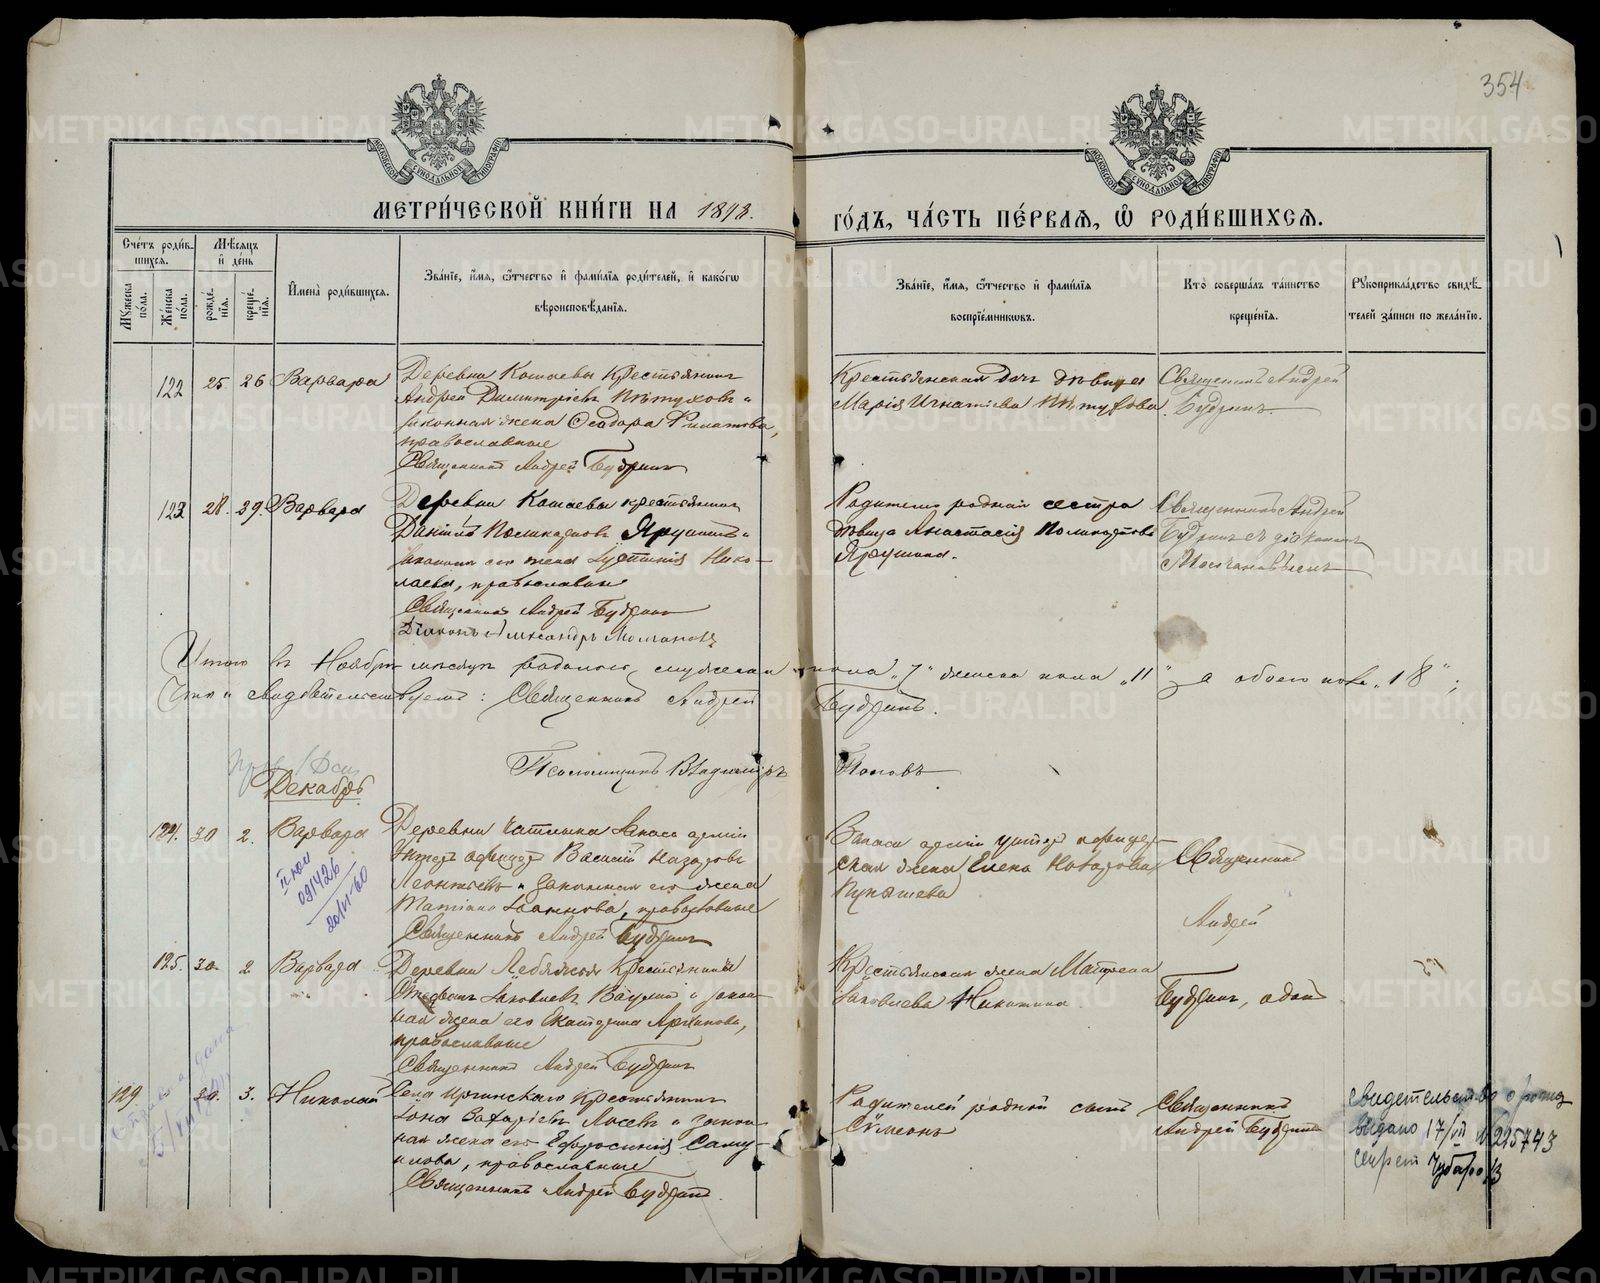 354
МЕТРИ́ЧЕСКОЙ КНИ́ГИ НА 1893.
ГО́ДЪ, ЧА́СТЬ ПЕ́РВАЯ, Ѿ РОДИ́ВШИХСЯ.
Сче́тъ роди́вшихся.
Му́жеска по́ла.
Же́нска по́ла.
Мѣ́сяцъ и де́нь
рожде́нія.
креще́нія.
Имена̀ роди́вшихся.
Зва́ніе, и́мя, ѻ҆́тчество и фами́лія роди́телей, и како́гѡ вѣроисповѣ́данія.
Зва́ніе, и́мя, ѻ҆́тчество и фами́лія воспріе́мникѡвъ.
Кто̀ соверша́лъ та́инство креще́нія.
Рукоприкла́дство свидѣ́телей за́писи по жела́нію.
122 25 26 Варвара
Деревни Кошаевы Крестьянинъ
Андрей Димитріевъ Пѣтуховъ и
законная жена Ѳеодора Филатова,
православные
Священникъ Андрей Будринъ
Крестьянская дочь дѣвица
Марія Игнатіева Пѣтухова.
Священникъ Андрей
Будринъ
123 28. 29. Варвара
Деревни Кошаевы крестьянинъ
Даніилъ Поликарповъ Ярушинъ и
законная его жена Іустинія Нико-
лаева, православные
Священникъ Андрей Будринъ
Діаконъ Александръ Молчановъ
Родителю родная сестра
дѣвица Анастасія Поликарпова
Ярушина.
Священникъ Андрей
Будринъ съ діакономъ
Молчановымъ
Итого въ Ноябрѣ мѣсяцѣ родилось мужеска пола „7" женска пола „11" а обоего пола „18";
Что и свидѣтельствуемъ: Священникъ Андрей Будринъ.
Псаломщикъ Владиміръ Поповъ
Декабрь
124. 30 2. Варвара
Деревни Чатлыка Запаса арміи
Унтеръ офицеръ Василій Назаровъ
Леонтьевъ и законная его жена
Іоаннова, православные
Священникъ Андрей Будринъ
Запаса арміи унтеръ офицер-
ская жена Елена Назарова
Священникъ
Андрей
Будринъ, одинъ
125. 30. 2 Варвара
Деревни Лебяжья Крестьянинъ
Іаковлевъ и закон-
ная жена его Екатерина Архипова,
православные
Священникъ Андрей Будринъ
Крестьянская жена Матрона
Іаковлева Никитина.
129. 30. 3. Николай
Села Иргинскаго Крестьянинъ
Іона Захаріевъ Лосевъ и закон-
ная жена его Евфросинія Саму-
илова, православные
Священникъ Андрей Будринъ.
Родителей родной сынъ
Сѵмеонъ
Священникъ
Андрей Будринъ
Свидетельство о рожд
выдано 17/VII № 225743
секрет
METRIKI.GASO-URAL.RU